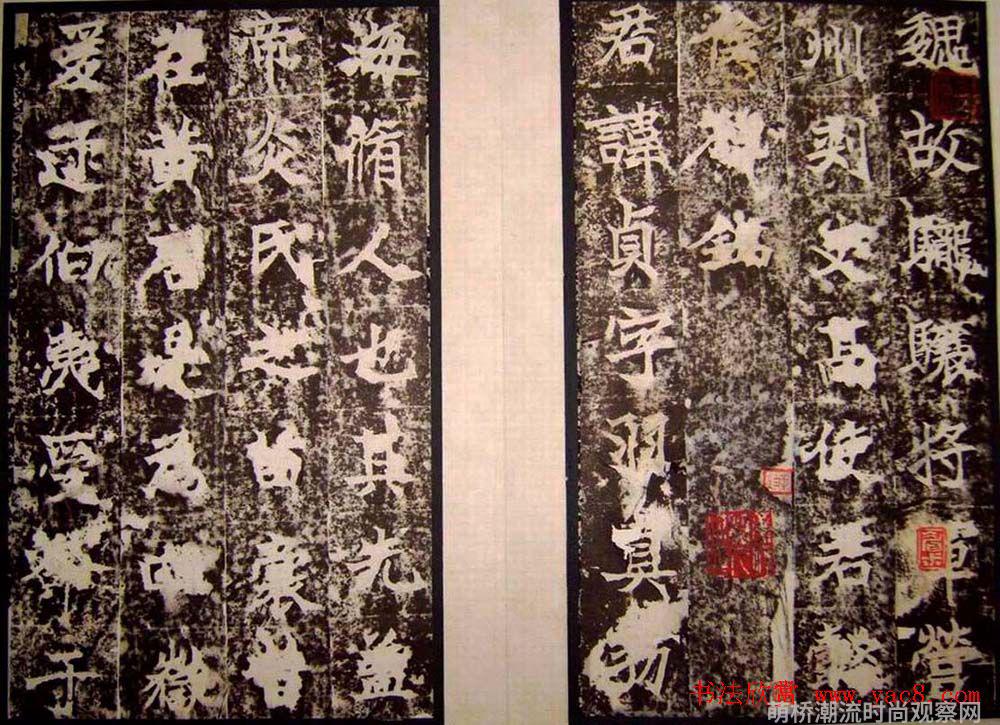 魏故龍驤將軍營
州刺史高使君懿
侯碑銘
君諱貞字羽真勃
海脩人也其先蓋
帝炎氏之苗裔昔
在黃唐是為四嶽
爰逮伯夷受于
书法欣赏 www.yac8.com
萌桥潮流时尚观察网